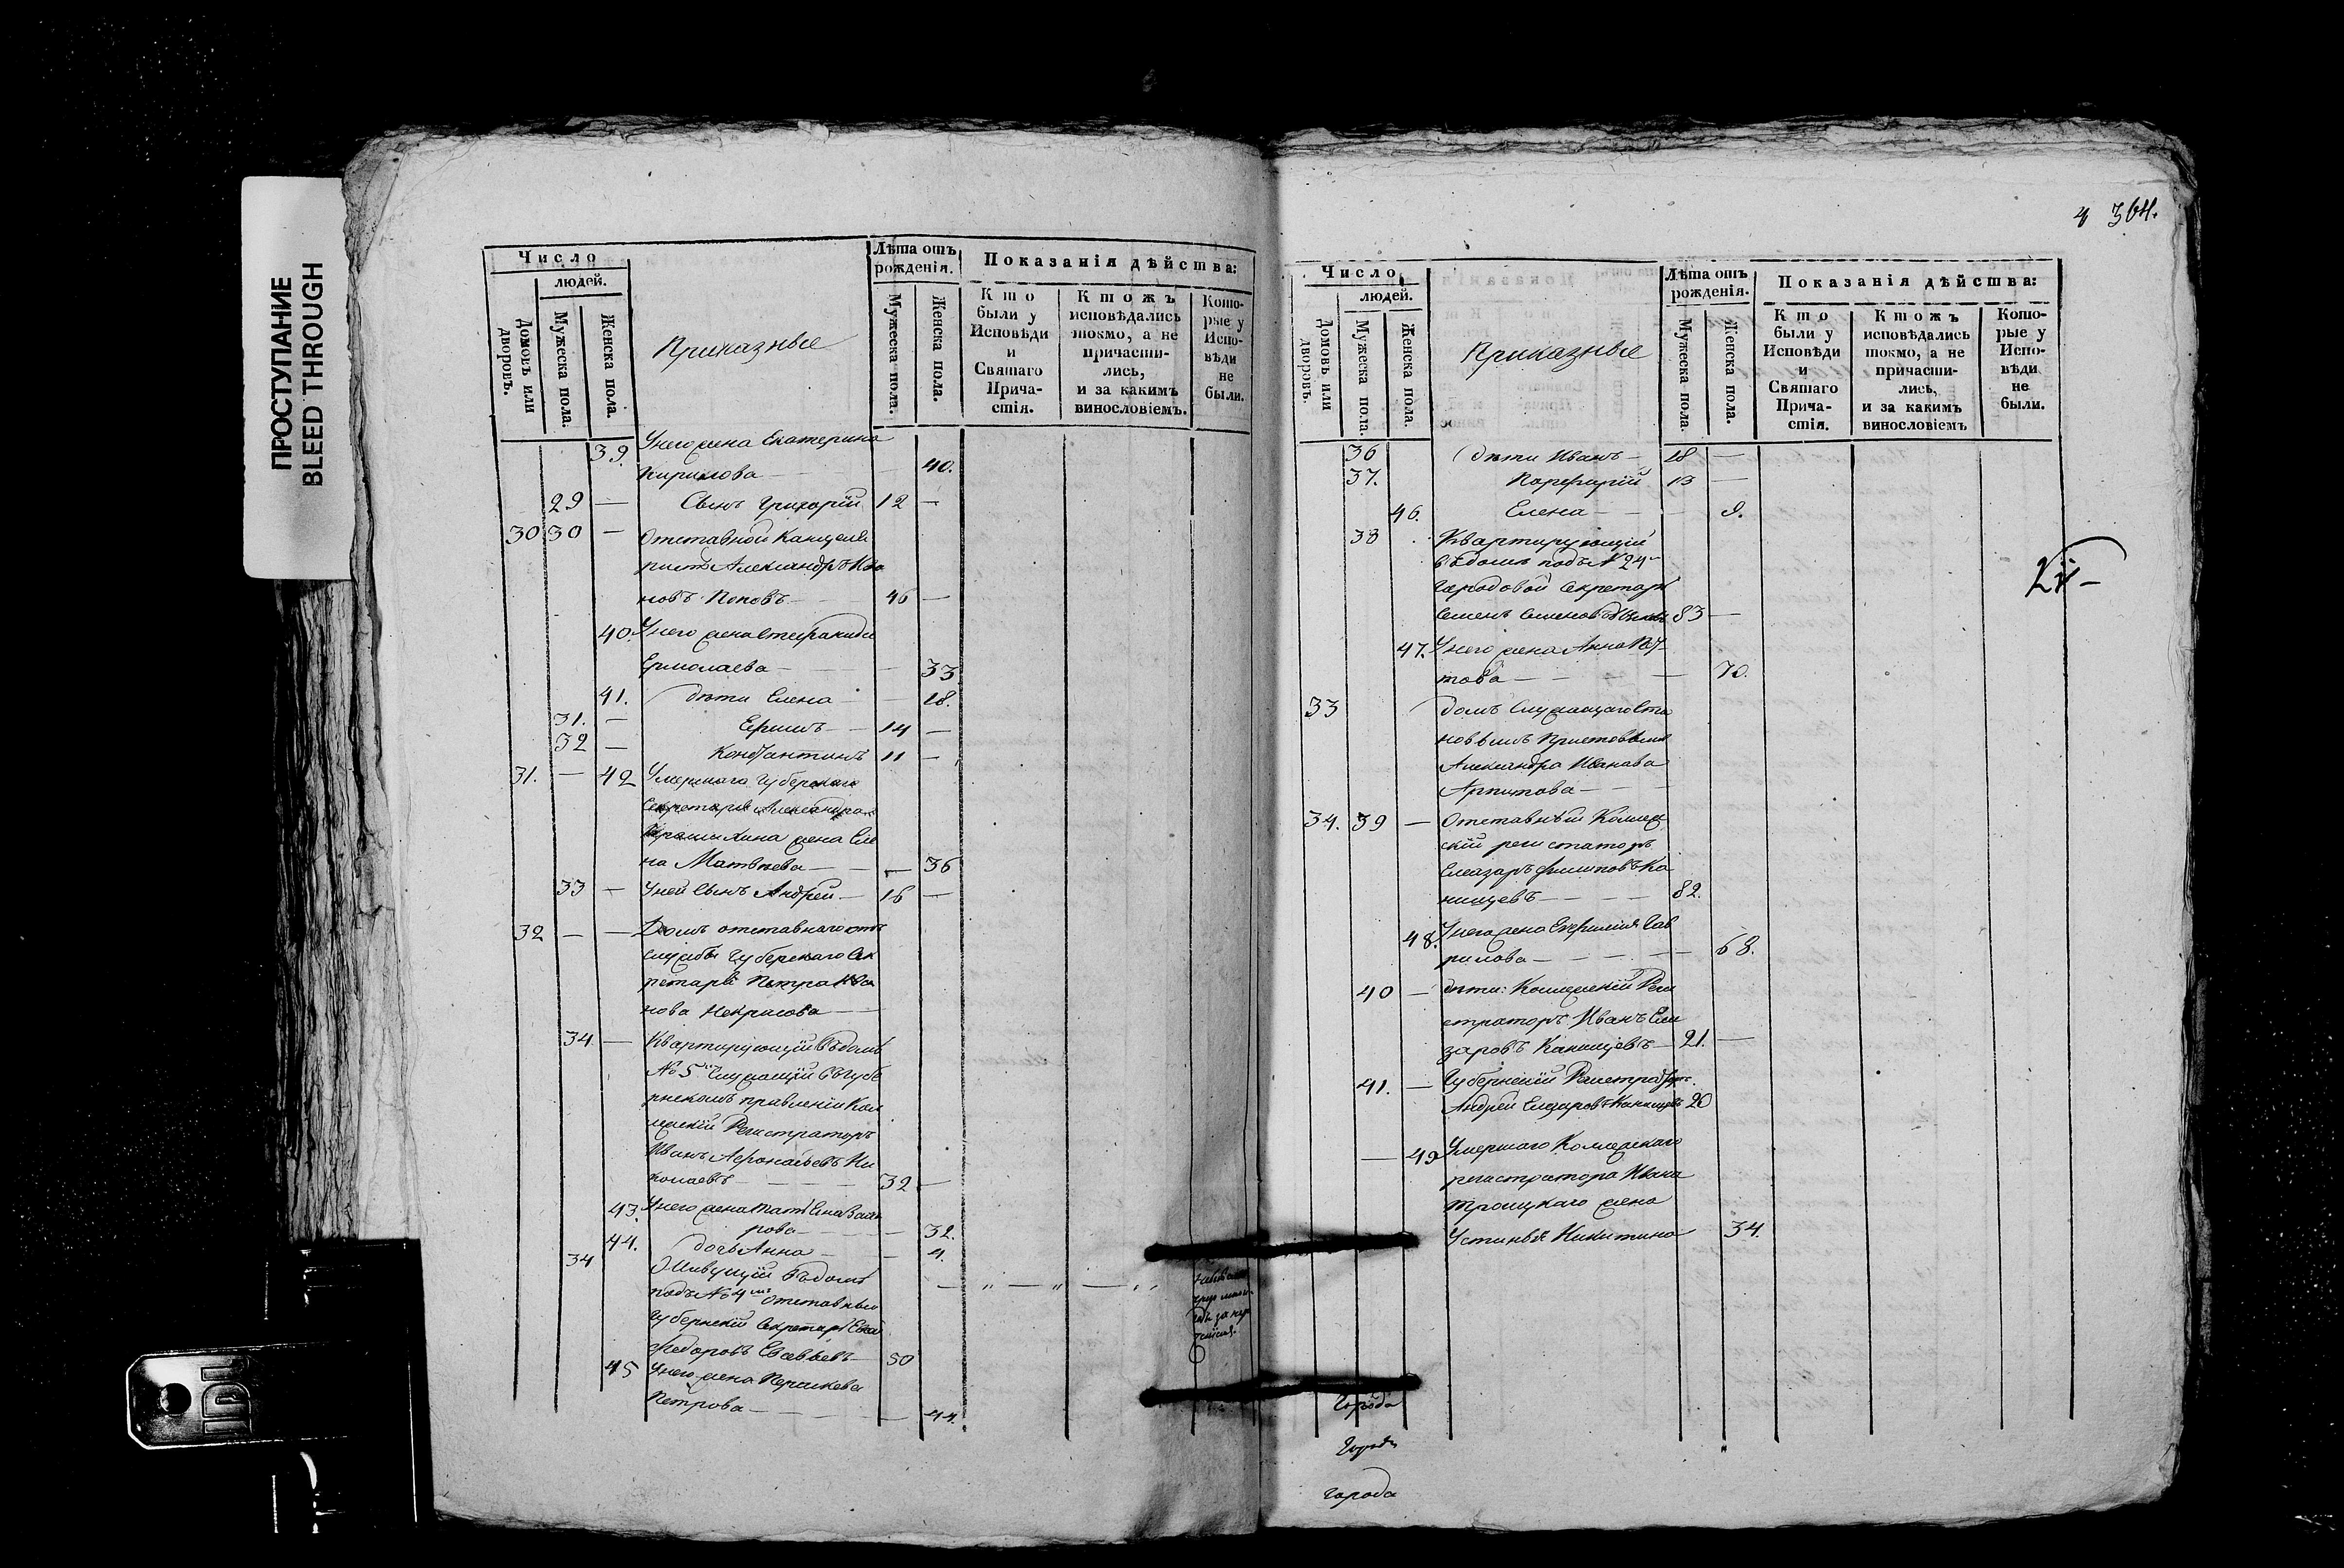 ПРОСТУПАНИЕ
BLEED THROUGH
Число
людей.
Домовъ или дворовъ.
Мужеска пола.
Женска пола.
Приказные
Лѣта отъ рожденія.
Мужеска пола.
Женска пола.
Показанія дѣйства:
Кто были у Исповѣди и Святаго Прича-стія.
Ктожъ исповѣдались токмо, а не причасти-лись, и за какимъ винословіемъ.
Кото-рые у Испо-вѣди не были.
39. У него жена Екатерина
Кирилова — 40.
29 — Сынъ Григорій 12 —
30 30 — Отставной Канцеля
ристъ Александръ Ива
новъ Поповъ — 46 —
40. У него жена Степанида
Ермолаева — 33
41. дѣти Елена — 18.
31. — Ефимъ — 14 —
32 — Константинъ 11 —
31. — 42 Умершаго Губернскаго
Секретаря Александра
жена Еле
на Матвѣева — 36
33 — У ней сынъ Андрей — 16 —
32 — — Домъ отставнаго отъ
службы Губернскаго Сек
ретаря Петра Ива
нова Некрасова —
34 — Квартирующій въ домѣ
№ 5 Служащій въ Губе
рнскомъ правленіи Кол
лежскій Регистраторъ
Иванъ Афонасьевъ Ни
колаевъ — 32 —
43. У него жена Татьяна
рова — 32.
44. дочь Анна — 4.
34 Живущій въ домѣ
подъ № 4 Отставный
Губернскій Секретарь
Федоровъ Евсевьевъ — 50
45 У него жена Парасковья
Петрова — 44.
4 364.
Число
людей.
Домовъ или дворовъ.
Мужеска пола.
Женска пола.
Приказные
Лѣта отъ рожденія.
Мужеска пола.
Женска пола.
Показанія дѣйства:
Кто были у Исповѣди и Святаго Прича-стія.
Ктожъ исповѣдались токмо, а не причасти-лись, и за какимъ винословіемъ
Кото-рые у Испо-вѣди не были.
36 дѣти Иванъ — 18 —
37. Порфирій 13 —
46. Елена — 9.
38 Квартирующій
въ домѣ подъ № 24
городовой секретарь
Семенъ Семеновъ 83 —
47. У него жена Анна
това — 70.
33 домъ Служащаго Ста
новымъ Приставомъ
Александра Иванова
Архипова —
34. 39 — Отставный Коллеж
скій регистраторъ
Елеазаръ Филиповъ Ка
нищевъ — 82.
48. У него жена Евфимія Гав
рилова — 68.
40 — дѣти: Коллежскій Реги
страторъ Иванъ Елеа
заровъ Канищевъ — 21. —
41. — Губернскій Регистраторъ
Андрей Елеазаровъ Канищевъ 20
— 49 Умершаго Коллежскаго
регистратора Ивана
Троицкаго жена
Устинья Никитина 34.
Города
Города
города